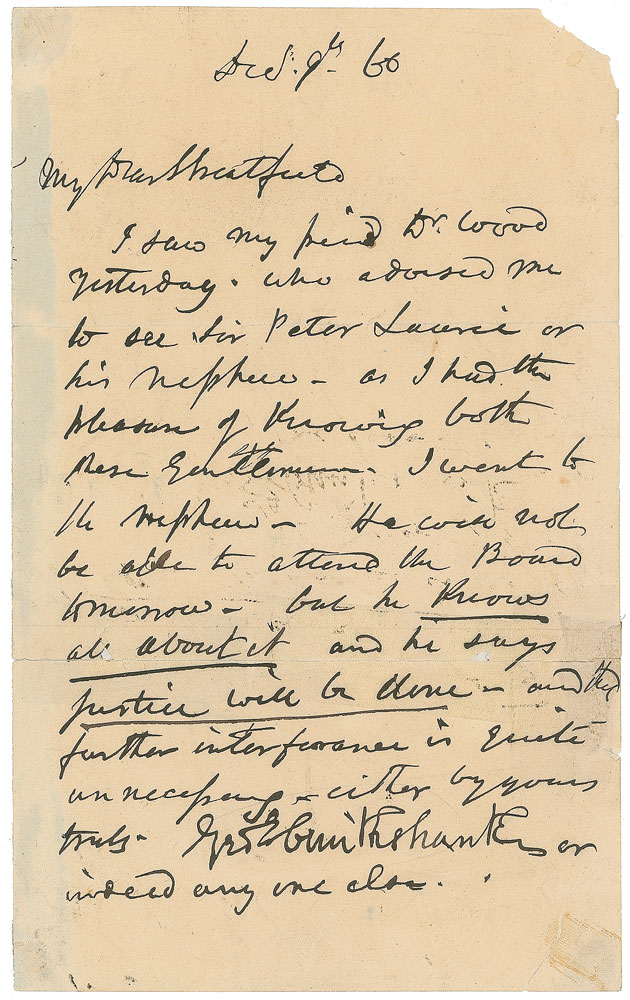 Decr. 9th 66
My Dear Streatfield
I saw my friend Dr. Wood
yesterday. who advised me
to see Sir Peter Laurie or
his Nephew – as I had the
pleasure of Knowing both
these Gentlemen. I went to
the Nephew – He will not
be able to attend the Board
tomorrow – but he Knows
all about it and he says
justice will be done – and that
further interference is quite
unnecessary – either by yours
truly – Geoe Cruikshank or
indeed any one else.